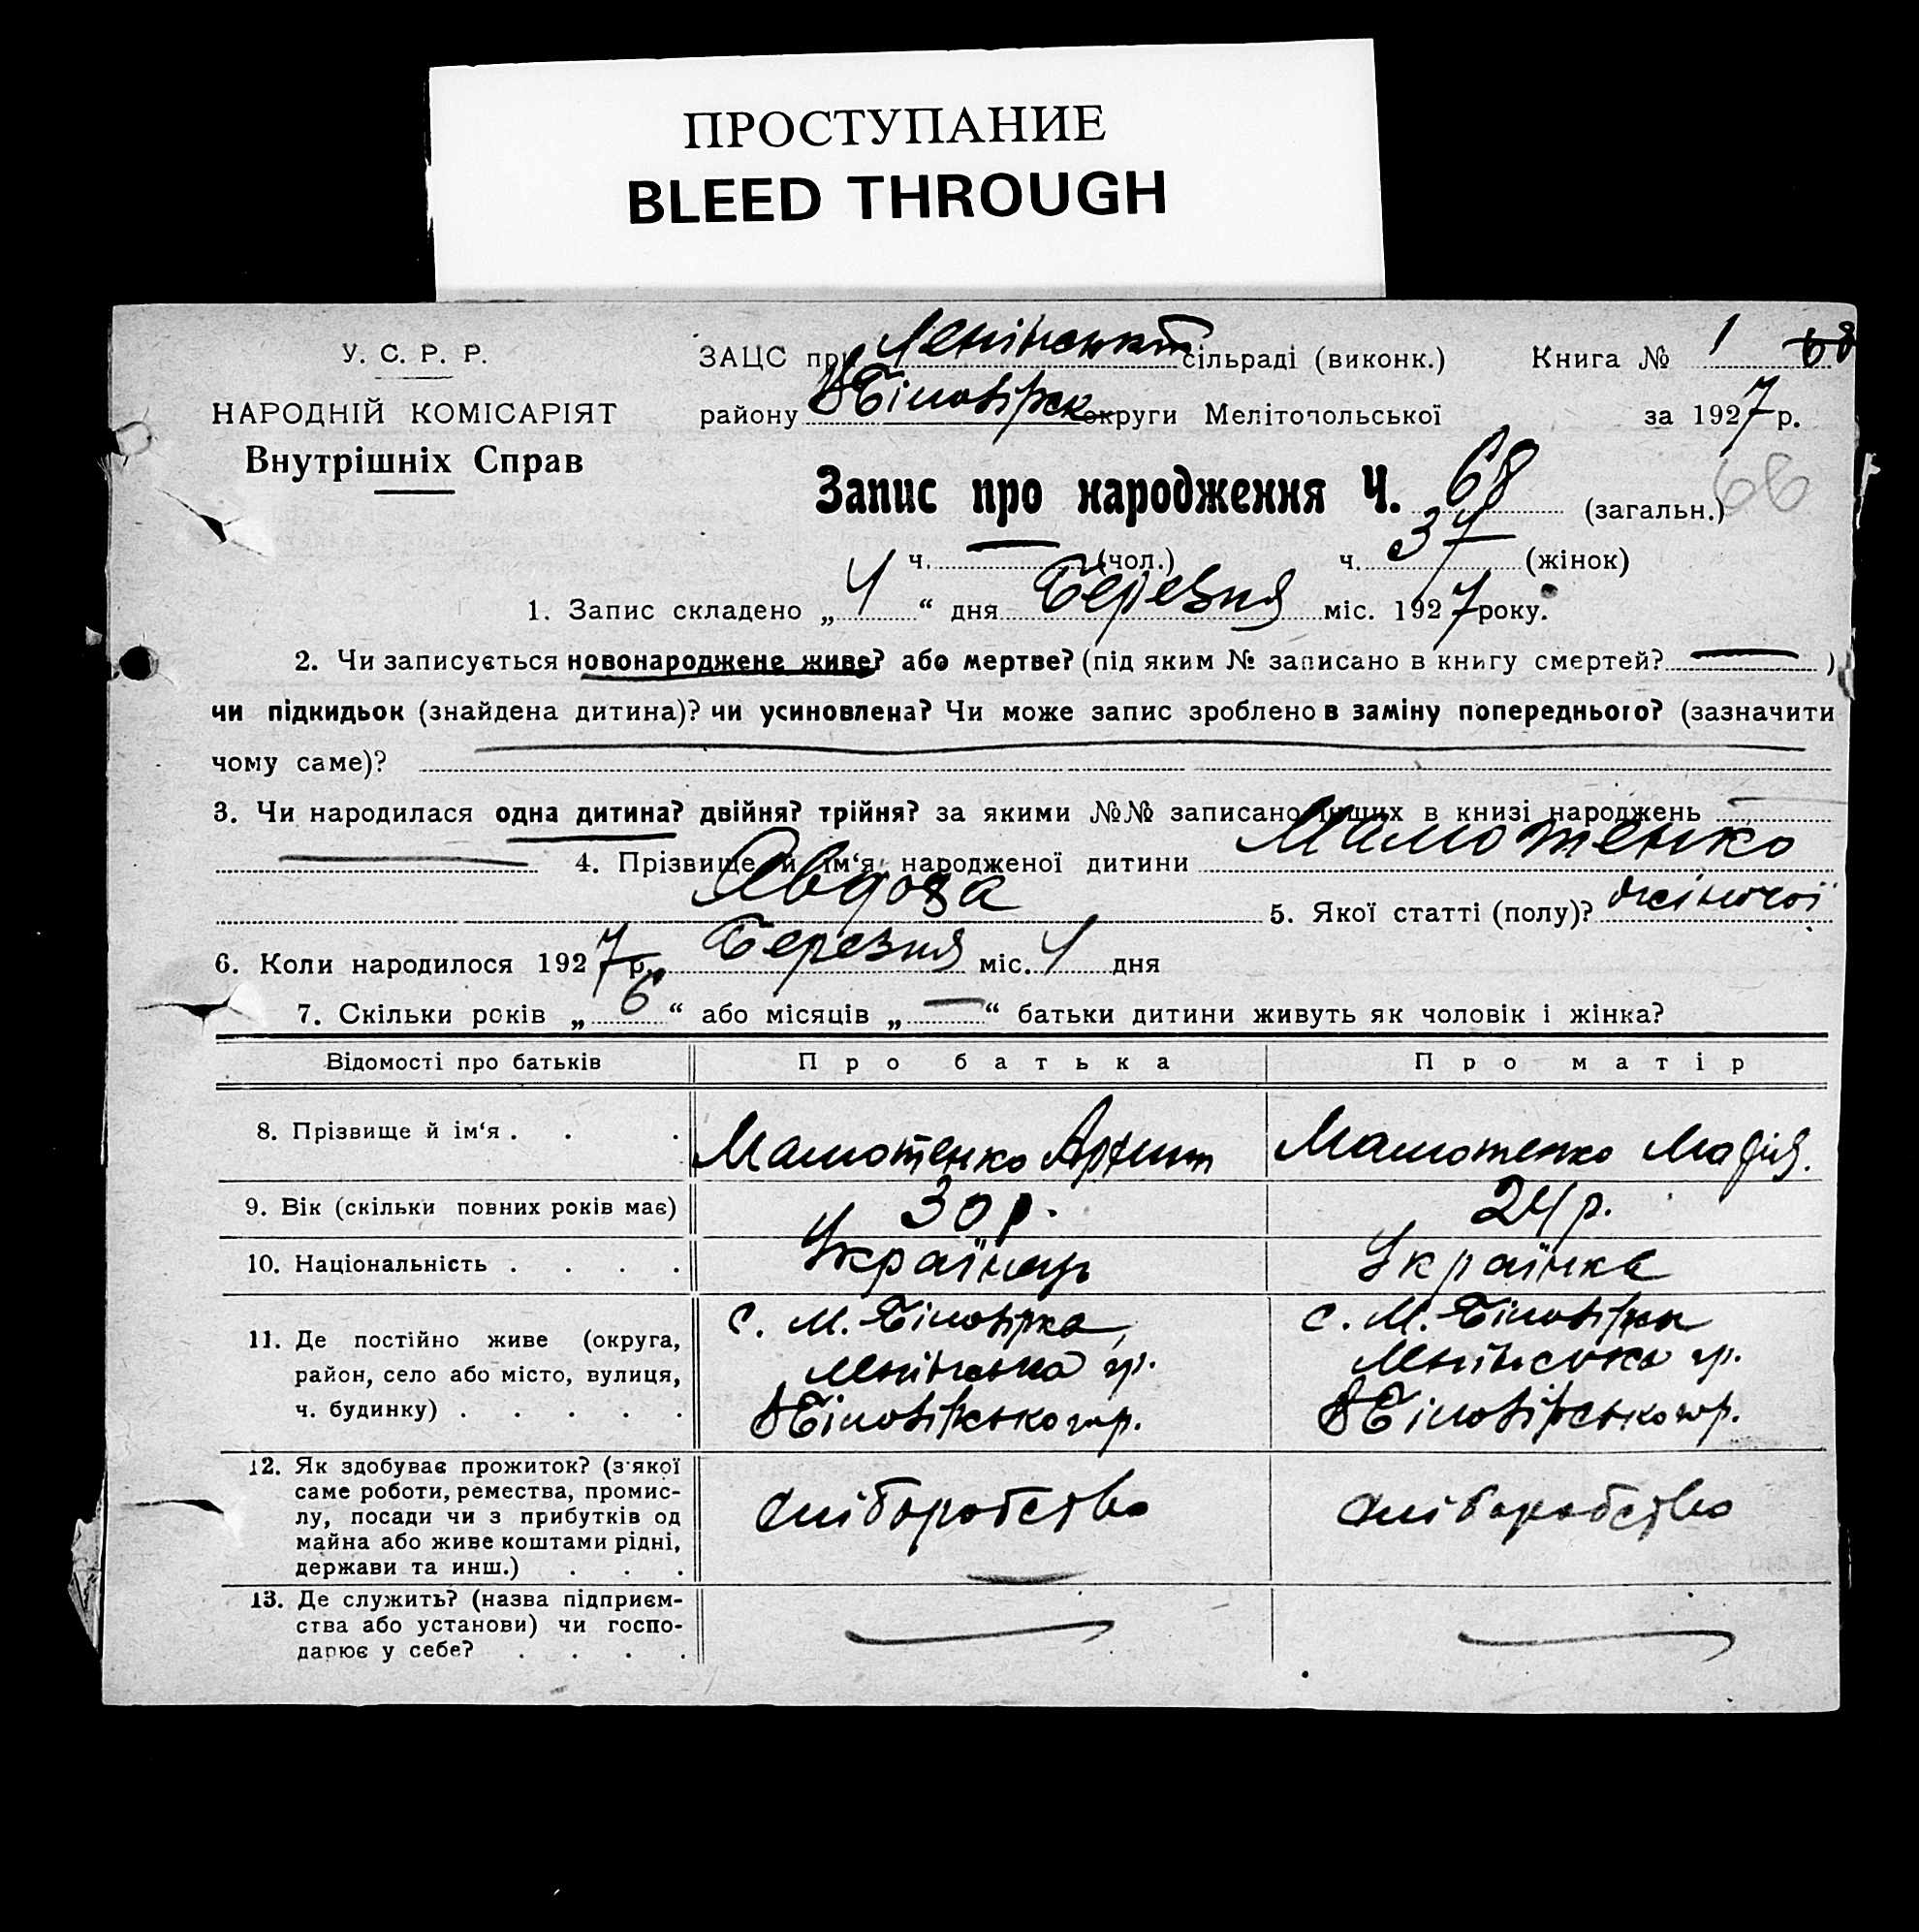 ПРОСТУПАНИЕ
BLEED THROUGH
У. С. Р. Р.
НАРОДНІЙ КОМІСАРІЯТ
Внутрішніх Справ
ЗАЦС при Ленінський сільраді (виконк.) Книга № 1 68
району округи Мелітопольської за 1927 р.
Запис про народження Ч. 68 (загальн.) 66
ч. — (чол.) ч. 37 (жінок)
1. Запис складено „ 4 “ дня Березня міс. 1927 року.
2. Чи записується новонароджене живе? або мертве? (під яким № записано в книгу смертей? — )
чи підкидьок (знайдена дитина)? чи усиновлена? Чи може запис зроблено в заміну попереднього? (зазначити
чому саме)?
3. Чи народилася одна дитина? двійня? трійня? за якими №№ записано інших в книзі народжень
4. Прізвище й ім‘я народженої дитини
5. Якої статті (полу)? жіночої
6. Коли народилося 1927 р. Березня міс. 4 дня
7. Скільки років „ 6 “ або місяців „ — “ батьки дитини живуть як чоловік і жінка?
Відомості про батьків Про батька Про матір
8. Прізвище й ім‘я . . . Марія.
9. Вік (скільки повних років має) 30 р. 24 р.
10. Національність . . . . Українець Українка
11. Де постійно живе (округа,
район, село або місто, вулиця,
ч. будинку) . . . . .
с. М. Білозірка,
с. М. Білозірка
12. Як здобуває прожиток? (з якої
саме роботи, ремества, промис-
лу, посади чи з прибутків од
майна або живе коштами рідні,
держави та инш.) . . .
хліборобство хліборобство
13. Де служить? (назва підприєм-
ства або установи) чи госпо-
дарює у себе? . . . .